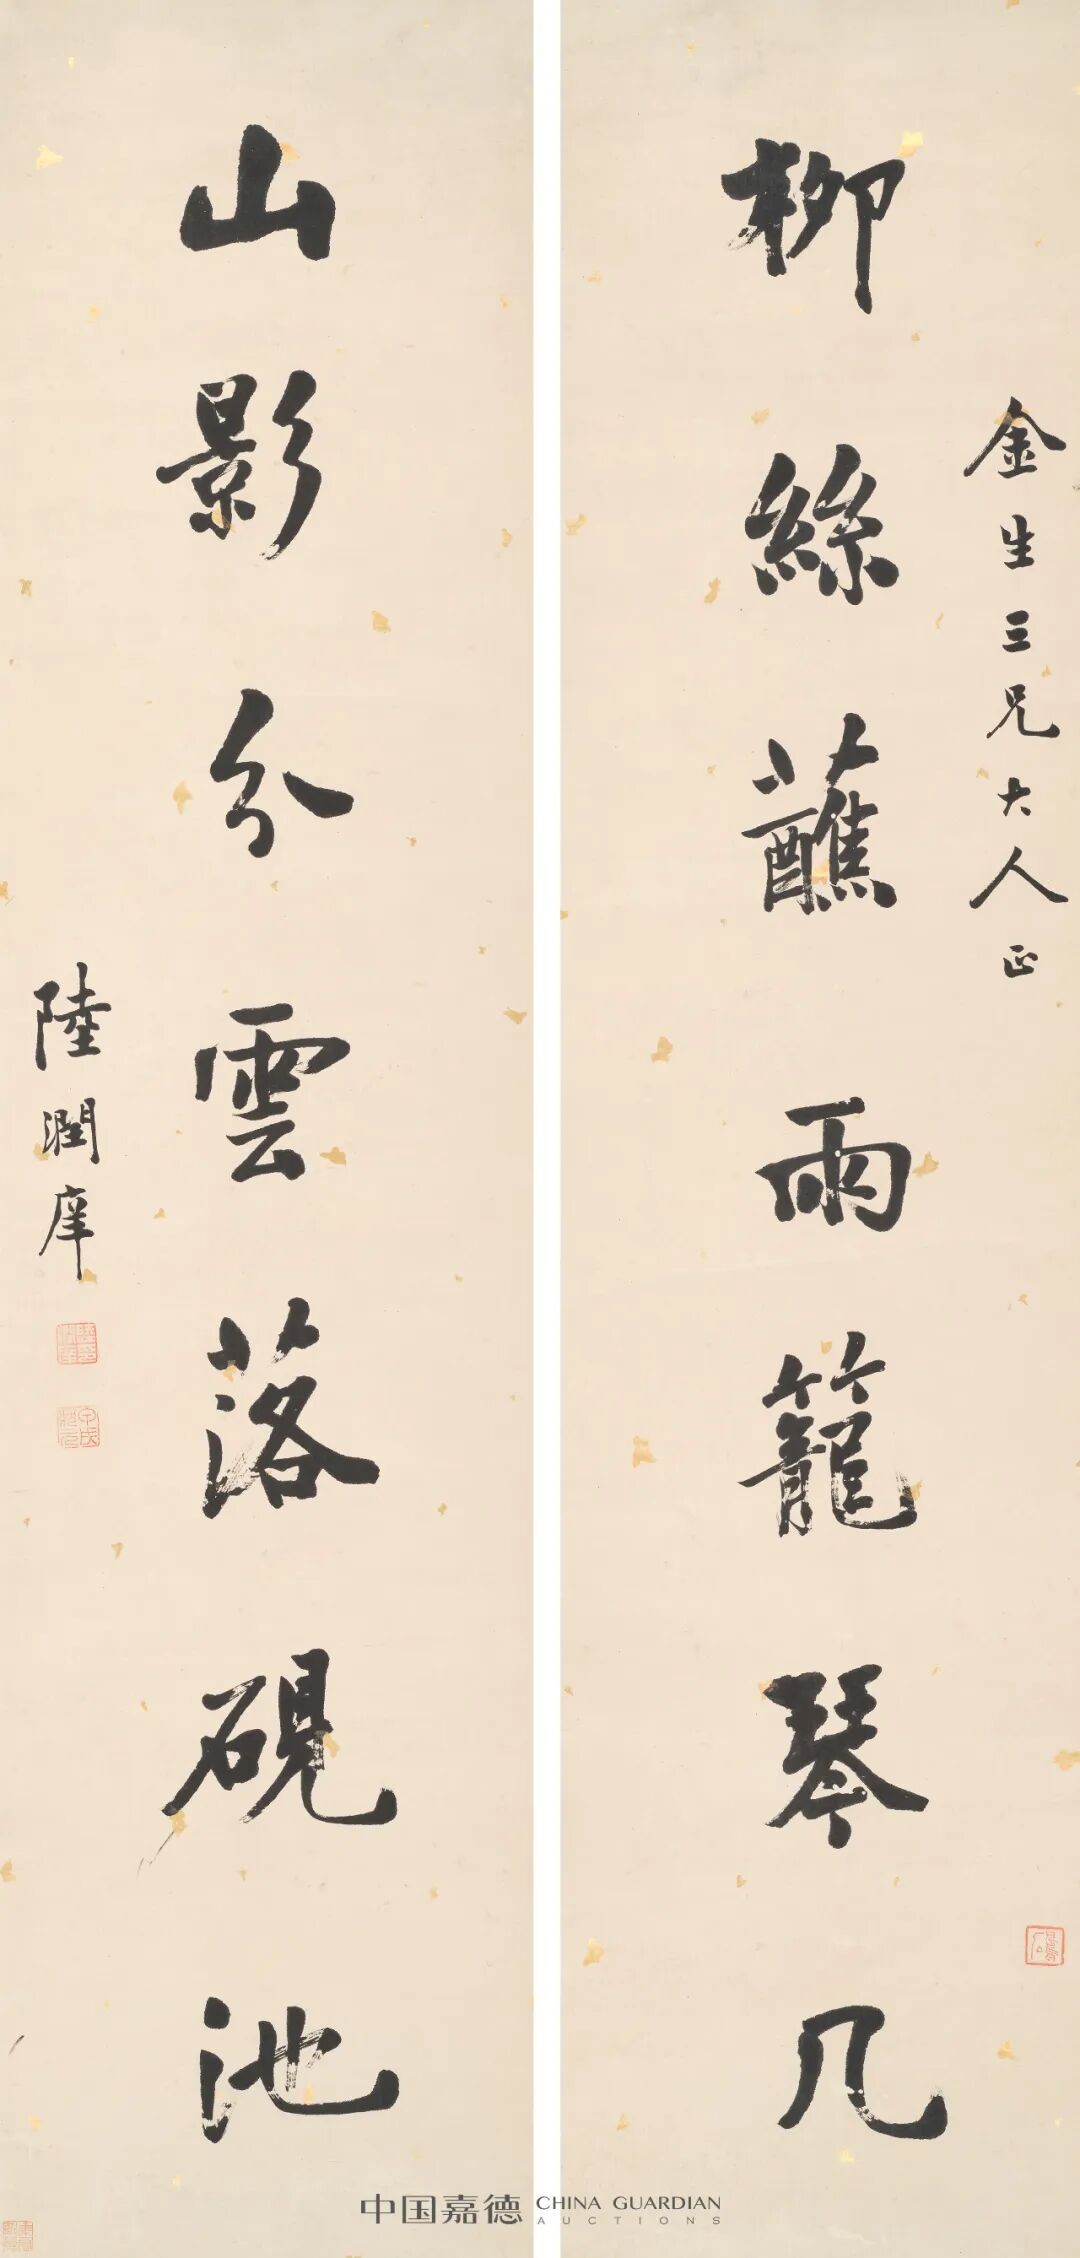 金生三兄大人正
柳絲蘸雨籠琴几
山影分雲落硯池
陸潤庠
中国嘉德 CHINA GUARDIAN
AUCTIONS